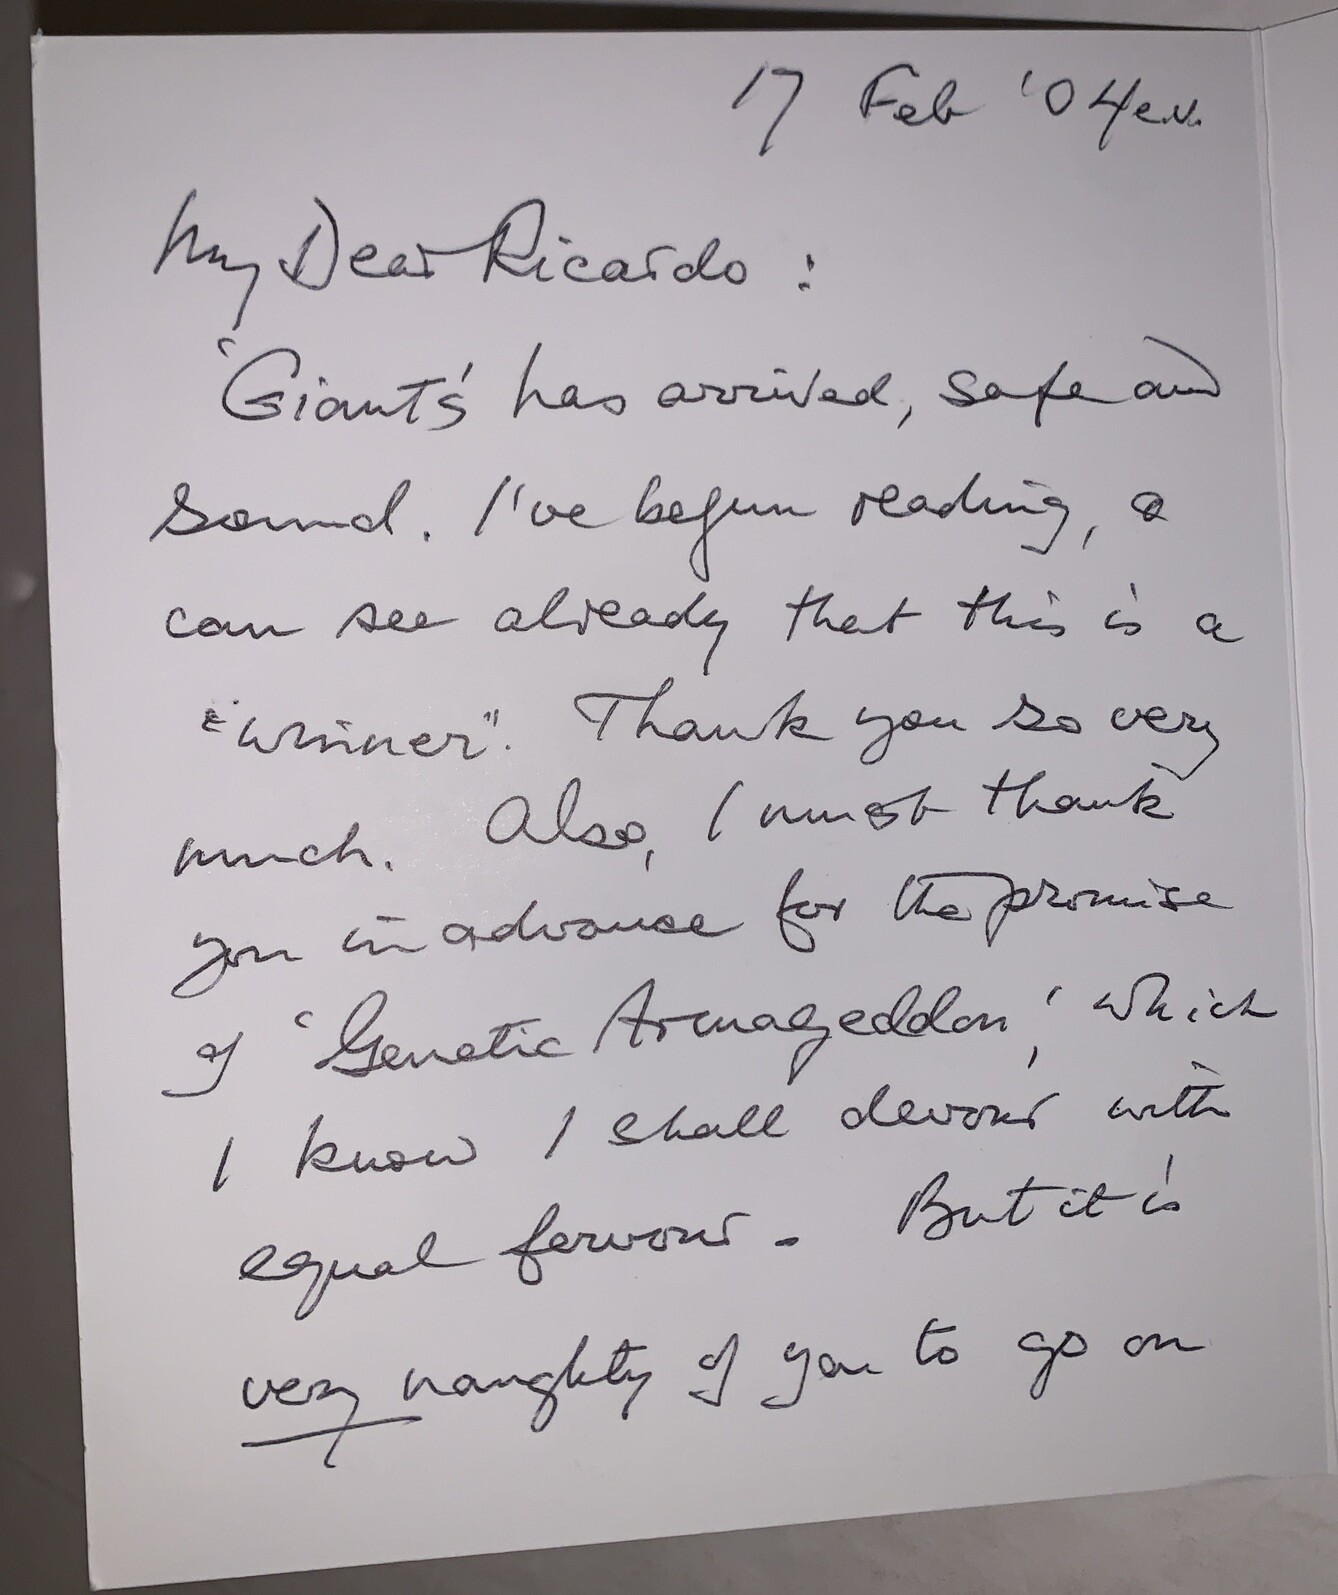 17 Feb '04 e.v.
My Dear Ricardo :
'Giants' has arrived, safe and
sound. I've begun reading, &
can see already that this is a
"winner". Thank you so very
much. Also, I must thank
you in advance for the promise
of 'Genetic Armageddon,' which
I know I shall devour with
equal fervour. But it is
very naughty of you to go on